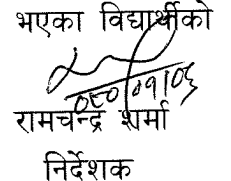 भएका विद्यार्थीको
०८०/०१/०६
रामचन्द्र शर्मा
निर्देशक